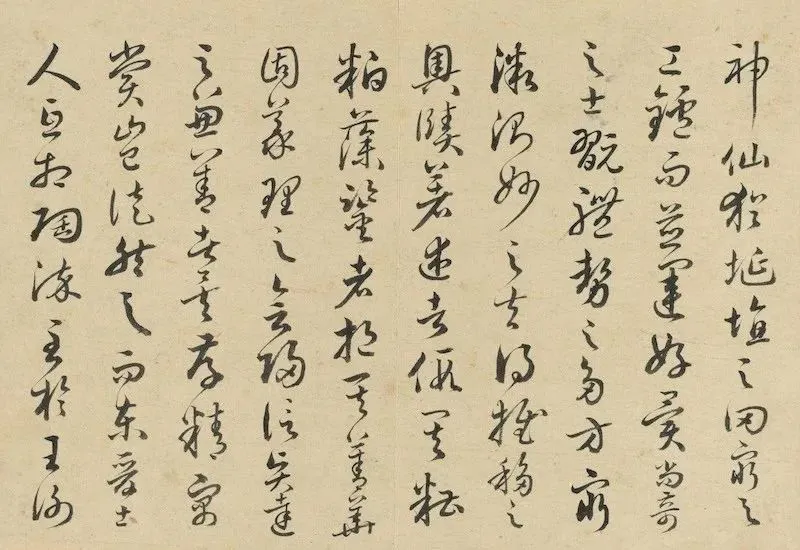 神仙猶埏埴之罔窮與
工鑪而並運好異尚奇
之士翫體勢之多方窮
微測妙之夫得推移之
奧賾著述者假其糟
粕藻鑒者挹其菁華
固義理之會歸信賢達
之兼善者矣存精寓
賞豈徒然與而東晉士
人互相陶染至於王謝